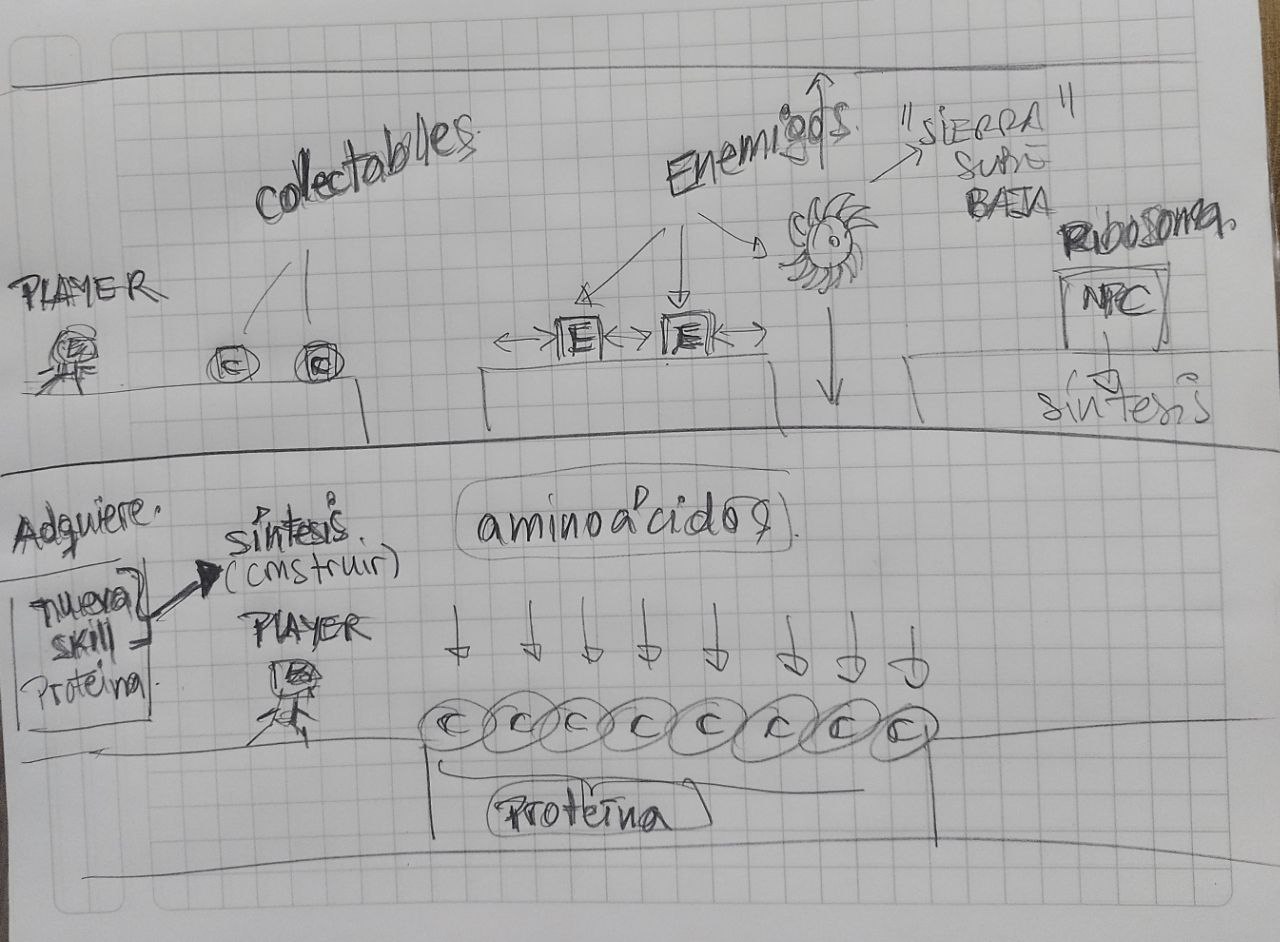 colectables.
Enemigos.
"SIERRA"
SUBE
BAJA
Ribosoma.
PLAYER
NPC
C
C
E
E
síntesis
Adquiere.
síntesis.
(construir)
aminoácidos.
nueva
skill
Proteína.
PLAYER
C C C C C C C C
Proteína